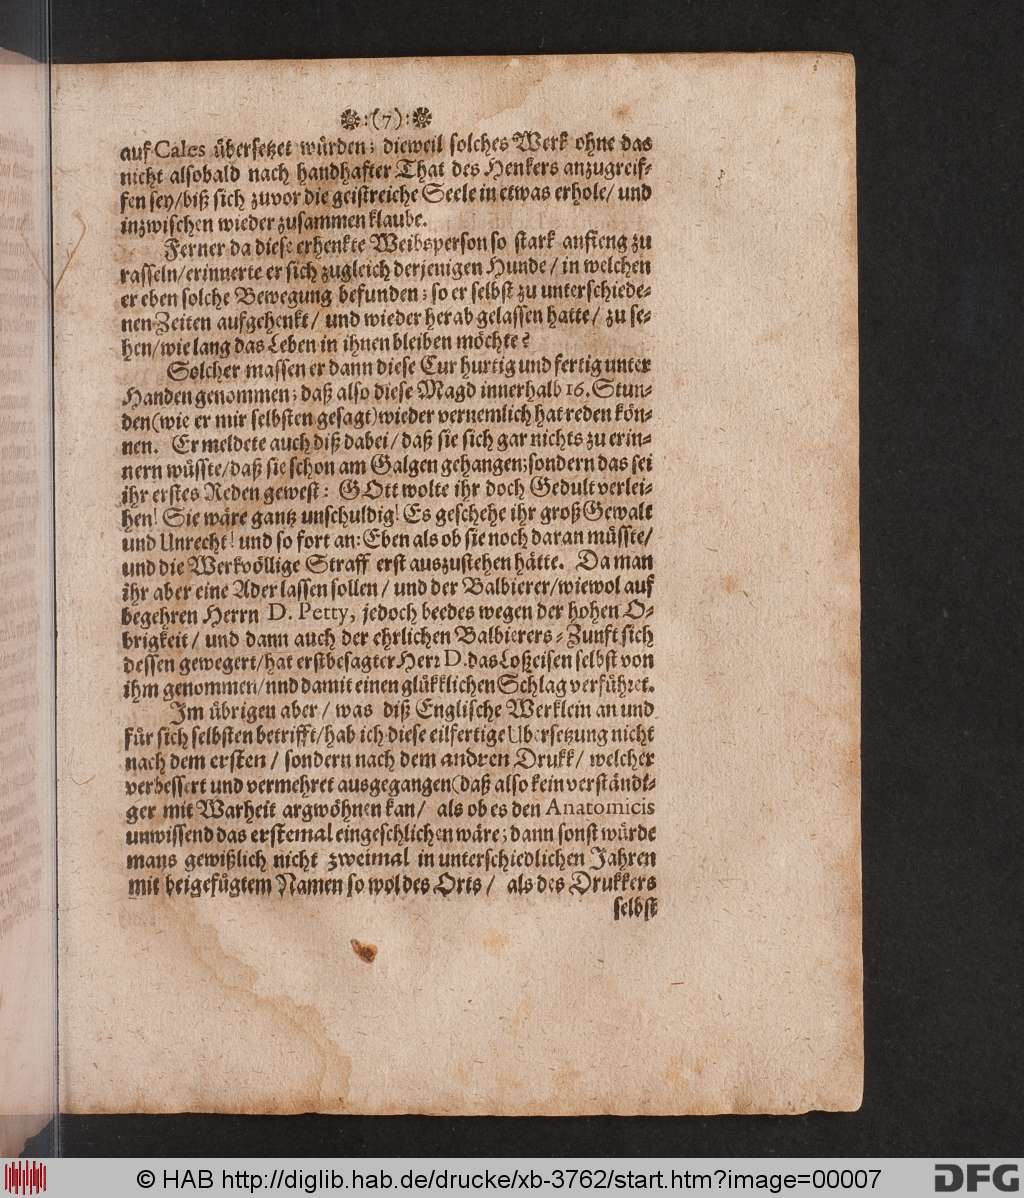 ❋:(7):❋
auf Cales übersetzet würden; dieweil solches Werk ohne das
nicht alsobald nach handhafter That des Henkers anzugreif-
fen sey/biß sich zuvor die geistreiche Seele in etwas erhole/ und
inzwischen wieder zusammen klaube.
Ferner da diese erhenkte Weibsperson so stark anfieng zu
rasseln/erinnerte er sich zugleich derjenigen Hunde/ in welchen
er eben solche Bewegung befunden; so er selbst zu unterschiede-
nen Zeiten aufgehenkt/ und wieder herab gelassen hatte/ zu se-
hen/wie lang das Leben in ihnen bleiben möchte?
Solcher massen er dann diese Cur hurtig und fertig unter
Handen genommen; daß also diese Magd innerhalb 16. Stun-
den(wie er mir selbsten gesagt)wieder vernemlich hat reden kön-
nen. Er meldete auch diß dabei/ daß sie sich gar nichts zu erin-
nern wüsste/daß sie schon am Galgen gehangen;sondern das sei
ihr erstes Reden gewest: GOtt wolte ihr doch Gedult verlei-
hen! Sie wäre gantz unschuldig! Es geschehe ihr groß Gewalt
und Unrecht! und so fort an: Eben als ob sie noch daran müsste/
und die Werkvöllige Straff erst auszustehen hätte. Da man
ihr aber eine Ader lassen sollen/ und der Balbierer/wiewol auf
begehren Herrn D. Petty, jedoch beedes wegen der hohen O-
brigkeit/ und dann auch der ehrlichen Balbierers-Zunft sich
dessen gewegert/hat erstbesagter Herr D. das Loßeisen selbst von
ihm genommen/und damit einen glükklichen Schlag verführet.
Im übrigen aber/ was diß Englische Werklein an und
für sich selbsten betrifft/hab ich diese eilfertige Übersetzung nicht
nach dem ersten/ sondern nach dem andren Drukk/ welcher
verbessert und vermehret ausgegangen(daß also kein verständi-
ger mit Warheit argwöhnen kan/ als ob es den Anatomicis
unwissend das erstemal eingeschlichen wäre; dann sonst würde
mans gewißlich nicht zweimal in unterschiedlichen Jahren
mit beigefügtem Namen so wol des Orts/ als des Drukkers
selbst
© HAB http://diglib.hab.de/drucke/xb-3762/start.htm?image=00007
DFG